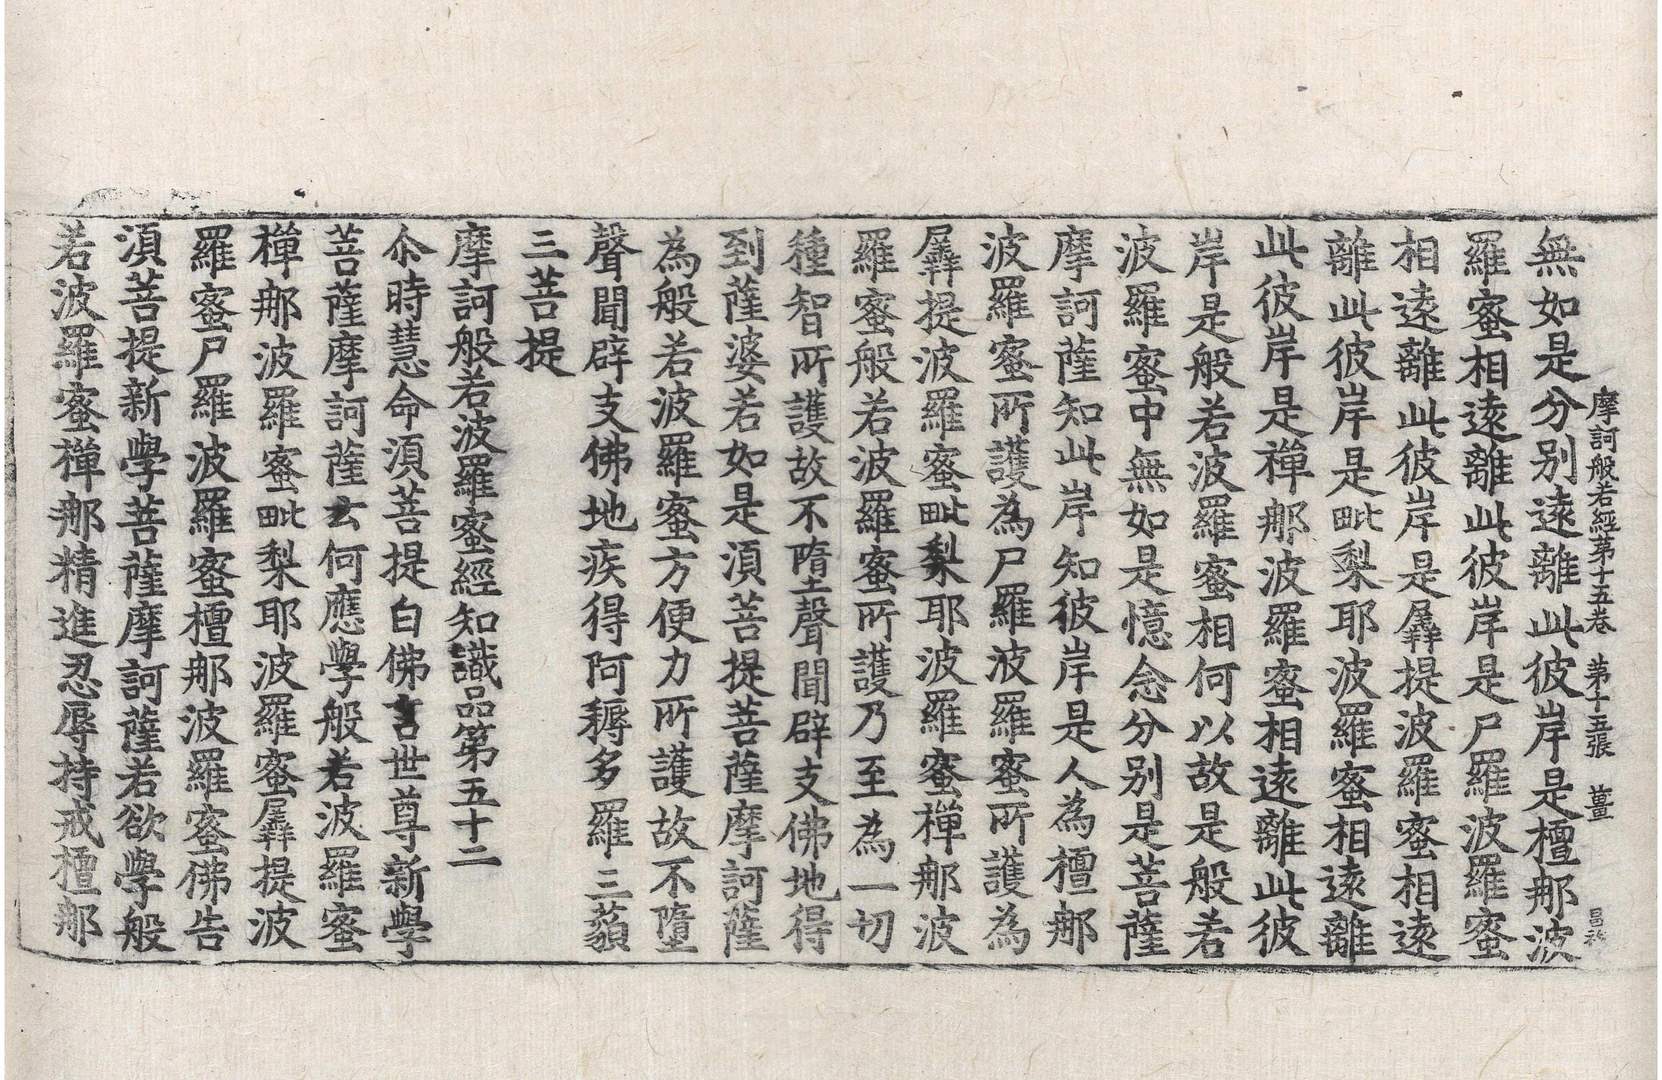 摩訶般若經第十五卷 第十五張 薑
無如是分別遠離此彼岸是檀那波
羅蜜相遠離此彼岸是尸羅波羅蜜
相遠離此彼岸是羼提波羅蜜相遠
離此彼岸是毗梨耶波羅蜜相遠離
此彼岸是禪那波羅蜜相遠離此彼
岸是般若波羅蜜相何以故是般若
波羅蜜中無如是憶念分別是菩薩
摩訶薩知此岸知彼岸是人為檀那
波羅蜜所護為尸羅波羅蜜所護為
羼提波羅蜜毗梨耶波羅蜜禪那波
羅蜜般若波羅蜜所護乃至為一切
種智所護故不墮聲聞辟支佛地得
到薩婆若如是須菩提菩薩摩訶薩
為般若波羅蜜方便力所護故不墮
聲聞辟支佛地疾得阿耨多羅三藐
三菩提
摩訶般若波羅蜜經知識品第五十二
尒時慧命須菩提白佛言世尊新學
菩薩摩訶薩云何應學般若波羅蜜
禪那波羅蜜毗梨耶波羅蜜羼提波
羅蜜尸羅波羅蜜檀那波羅蜜佛告
須菩提新學菩薩摩訶薩若欲學般
若波羅蜜禪那精進忍辱持戒檀那